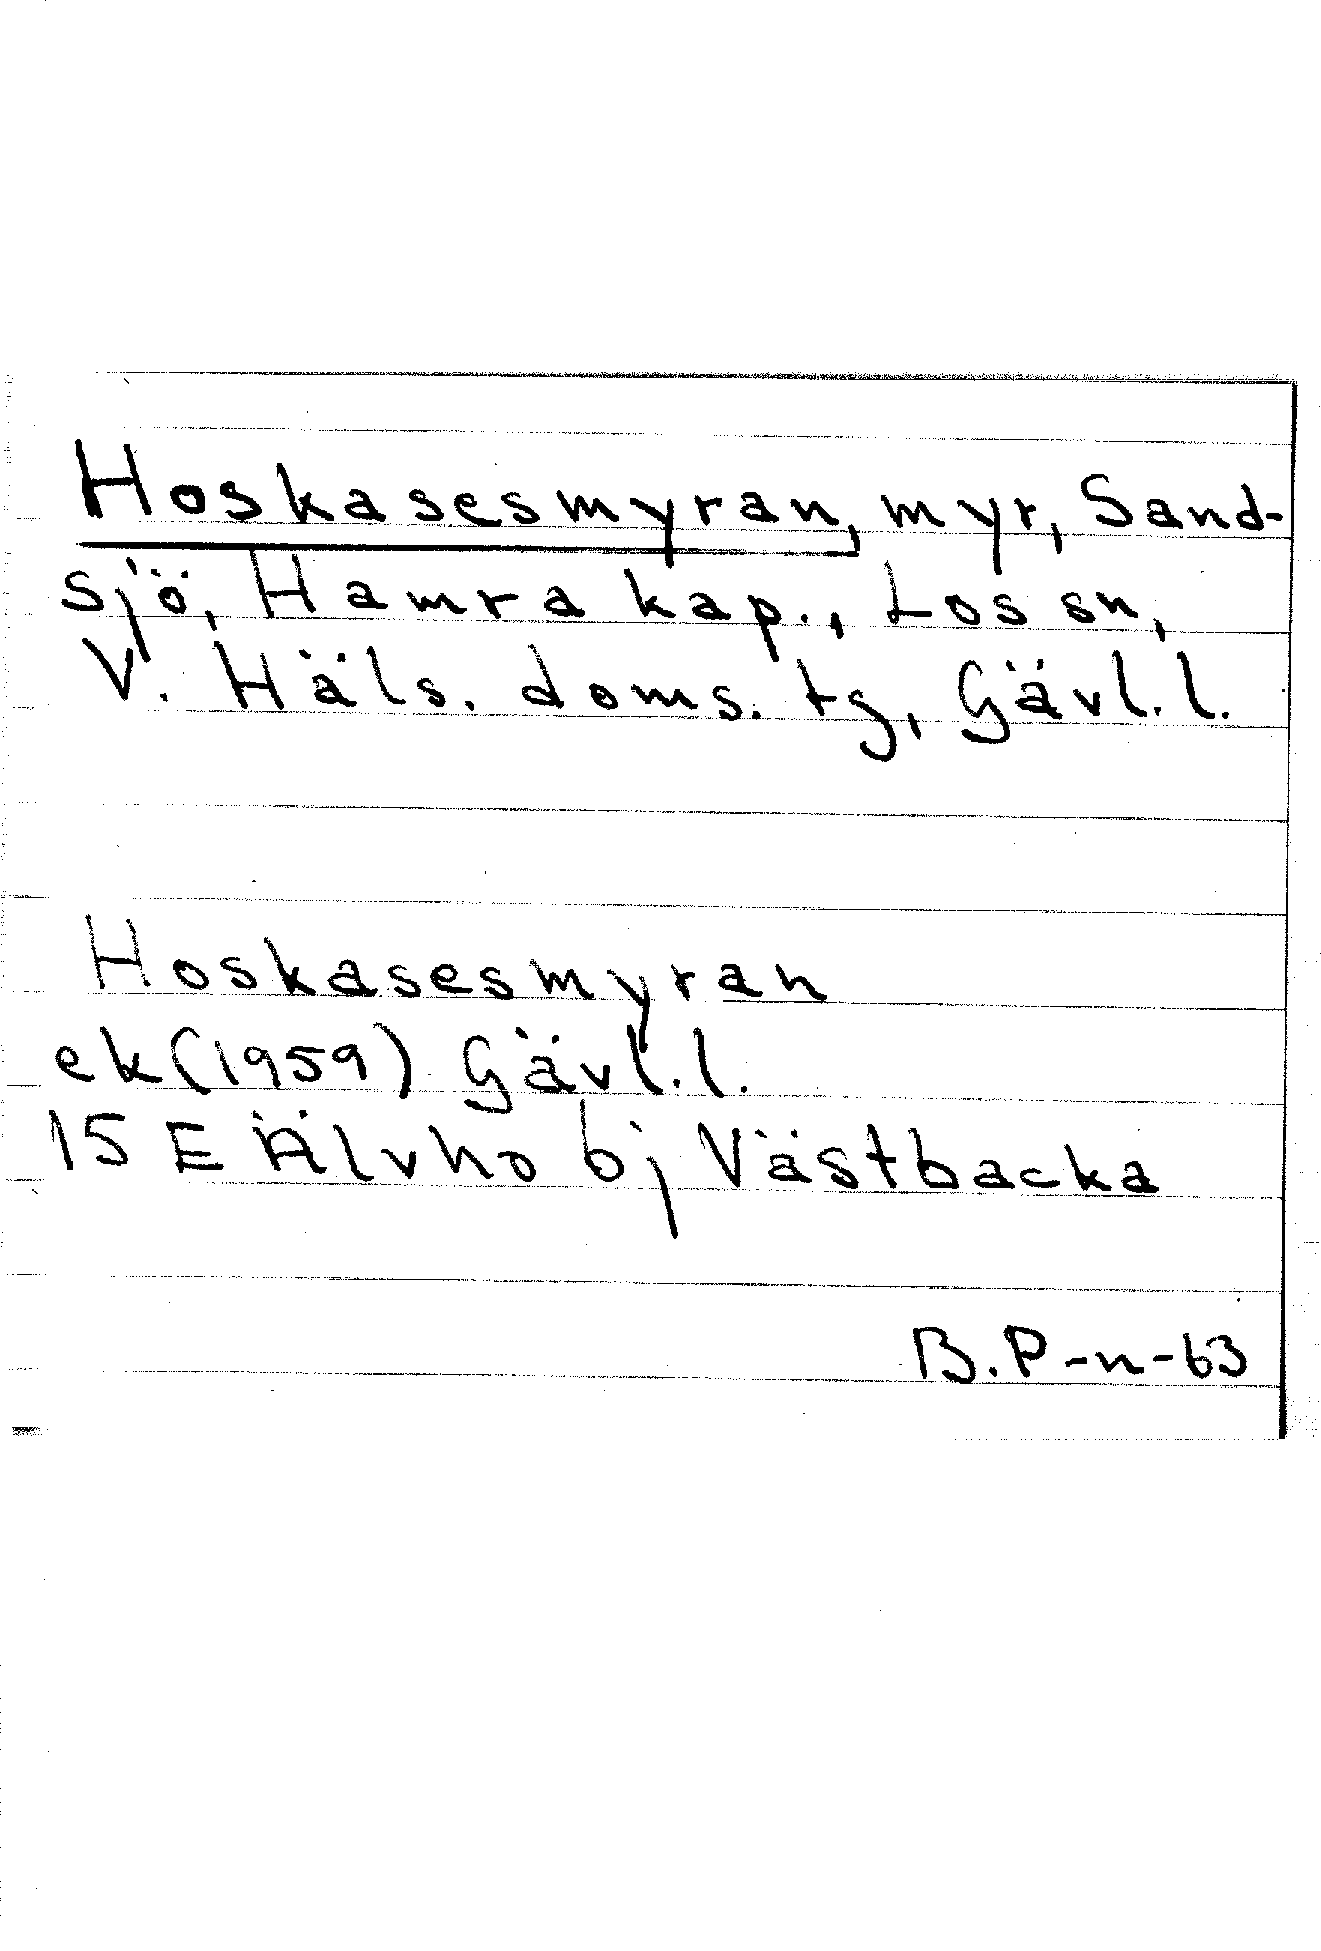 Hoskasesmyran, myr, Sand-
sjö, Hamra kap., Los sn,
V. Häls. doms. tg, Gävl. l.
Hoskasesmyran
ek (1959) Gävl. l.
15 E Älvho bj Västbacka
B. P-n-63